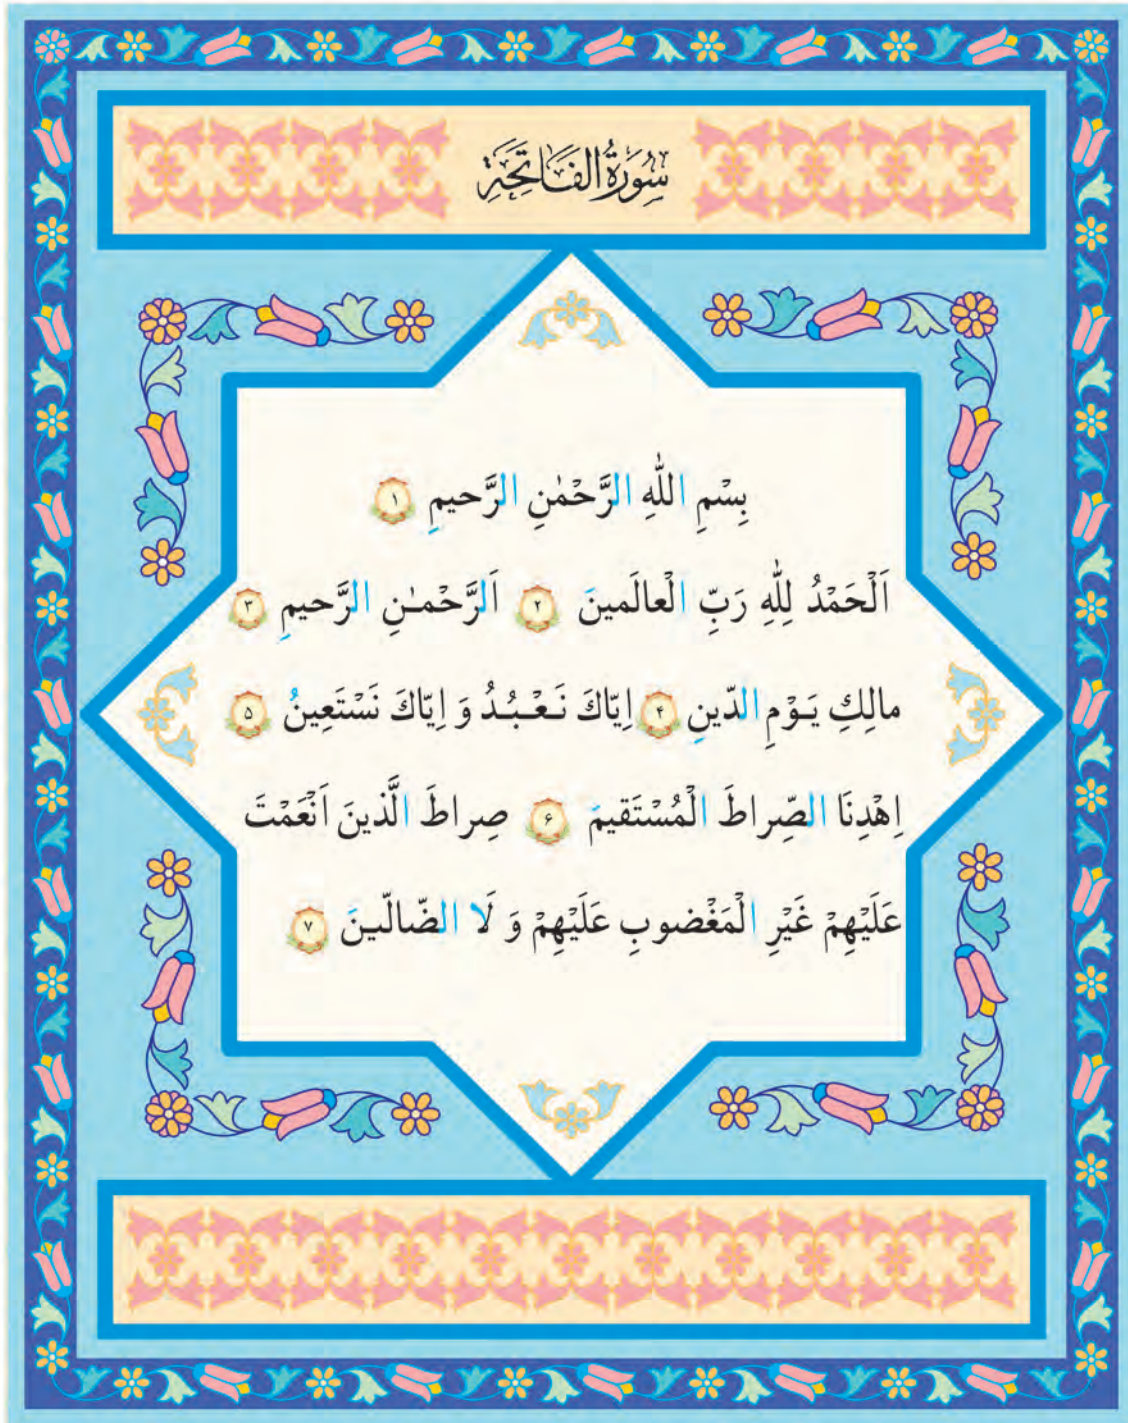 سُورَةُ الفَاتِحَةِ
بِسْمِ اللّٰهِ الرَّحْمٰنِ الرَّحیمِ ۱
اَلْحَمْدُ لِلّٰهِ رَبِّ الْعالَمینَ ۲ اَلرَّحْمـٰنِ الرَّحیمِ ۳
مالِكِ یَـوْمِ الدّینِ ۴ اِیّاكَ نَـعْـبُـدُ وَ اِیّاكَ نَسْتَعِینُ ۵
اِهْدِنَا الصِّراطَ الْمُسْتَقیمَ ۶ صِراطَ الَّذینَ اَنْعَمْتَ
عَلَیْهِمْ غَیْرِ الْمَغْضوبِ عَلَیْهِمْ وَ لَا الضّالّـینَ ۷